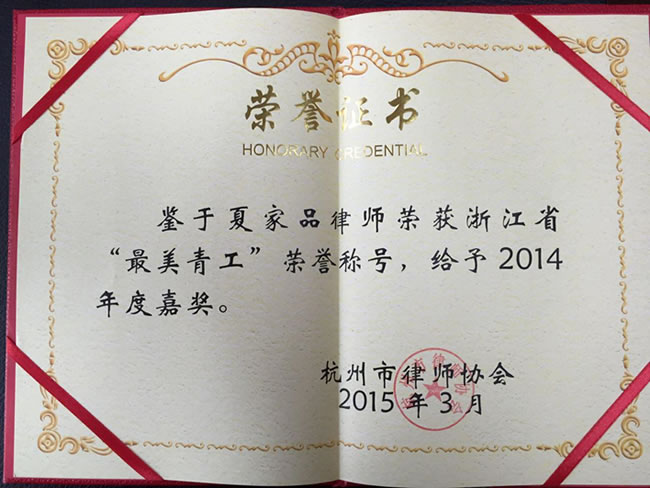 荣誉证书
HONORARY CREDENTIAL
鉴于夏家品律师荣获浙江省
“最美青工”荣誉称号，给予2014
年度嘉奖。
杭州市律师协会
2015年3月